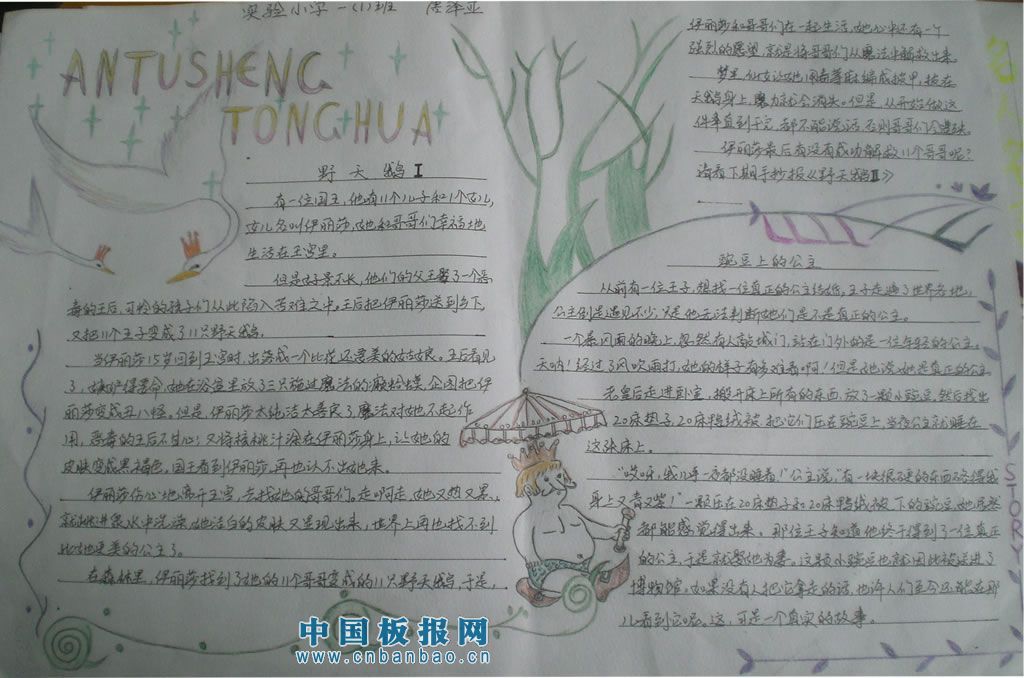 实验小学一(1)班
ANTUSHENG
TONGHUA
野天鹅Ⅰ
有一位国王,他有11个儿子和1个女儿,
女儿名叫伊丽莎,她和哥哥们幸福地
生活在王宫里。
但是好景不长,他们的父王娶了一个恶
毒的王后,可怜的孩子们从此陷入苦难之中,王后把伊丽莎送到乡下,
又把11个王子变成了11只野天鹅。
当伊丽莎15岁回到王宫时,出落成一个比花还要美的姑娘。王后看见
了,嫉妒得要命,她在浴室里放了三只施过魔法的癞蛤蟆,企图把伊
丽莎变成丑八怪。但是,伊丽莎太纯洁太善良了,魔法对她不起作
用,恶毒的王后不甘心,又将核桃汁涂在伊丽莎身上,让她的
皮肤变成黑褐色,国王看到伊丽莎,再也认不出她来。
伊丽莎伤心地离开王宫,去找她的哥哥们。走啊走,她又热又累,
就跳进泉水中洗澡,她洁白的皮肤又呈现出来,世界上再也找不到
比她更美的公主了。
在森林里,伊丽莎找到了她的11个哥哥变成的11只野天鹅,于是,
伊丽莎和哥哥们在一起生活,她心中还有一个
强烈的愿望,就是将哥哥们从魔法中解救出来。
梦里,仙女让她用荨麻编成披甲,披在
天鹅身上,魔力就会消失。但是,从开始做这
件事直到干完,都不能说话,否则哥哥们会遭殃。
伊丽莎最后有没有成功解救11个哥哥呢?
请看下期手抄报《野天鹅Ⅱ》
豌豆上的公主
从前有一位王子,想找一位真正的公主结婚,王子走遍了世界各地,
公主倒是遇见不少,只是他无法判断她们是不是真正的公主。
一个暴风雨的晚上,忽然有人敲城门,站在门外的是一位年轻的公主。
天呐!经过了风吹雨打,她的样子有多难看啊!但是她说她是真正的公主。
老皇后走进卧室,搬开床上所有的东西,放了一颗小豌豆,然后找出
20床垫子、20床鸭绒被,把它们压在豌豆上,当夜公主就睡在
这张床上。
“哎呀,我几乎一夜都没睡着!”公主说,“有一块很硬的东西硌得我
身上又青又紫!”一颗压在20床垫子和20床鸭绒被下的豌豆,她居然
都能感觉得出来,那位王子知道他终于得到了一位真正
的公主,于是就娶她为妻。这颗小豌豆也就因此被送进了
博物馆,如果没有人把它拿走的话,也许人们至今还能在那
儿看到它呢。这,可是一个真实的故事。
STORY
中国板报网
www.cnbanbao.cn